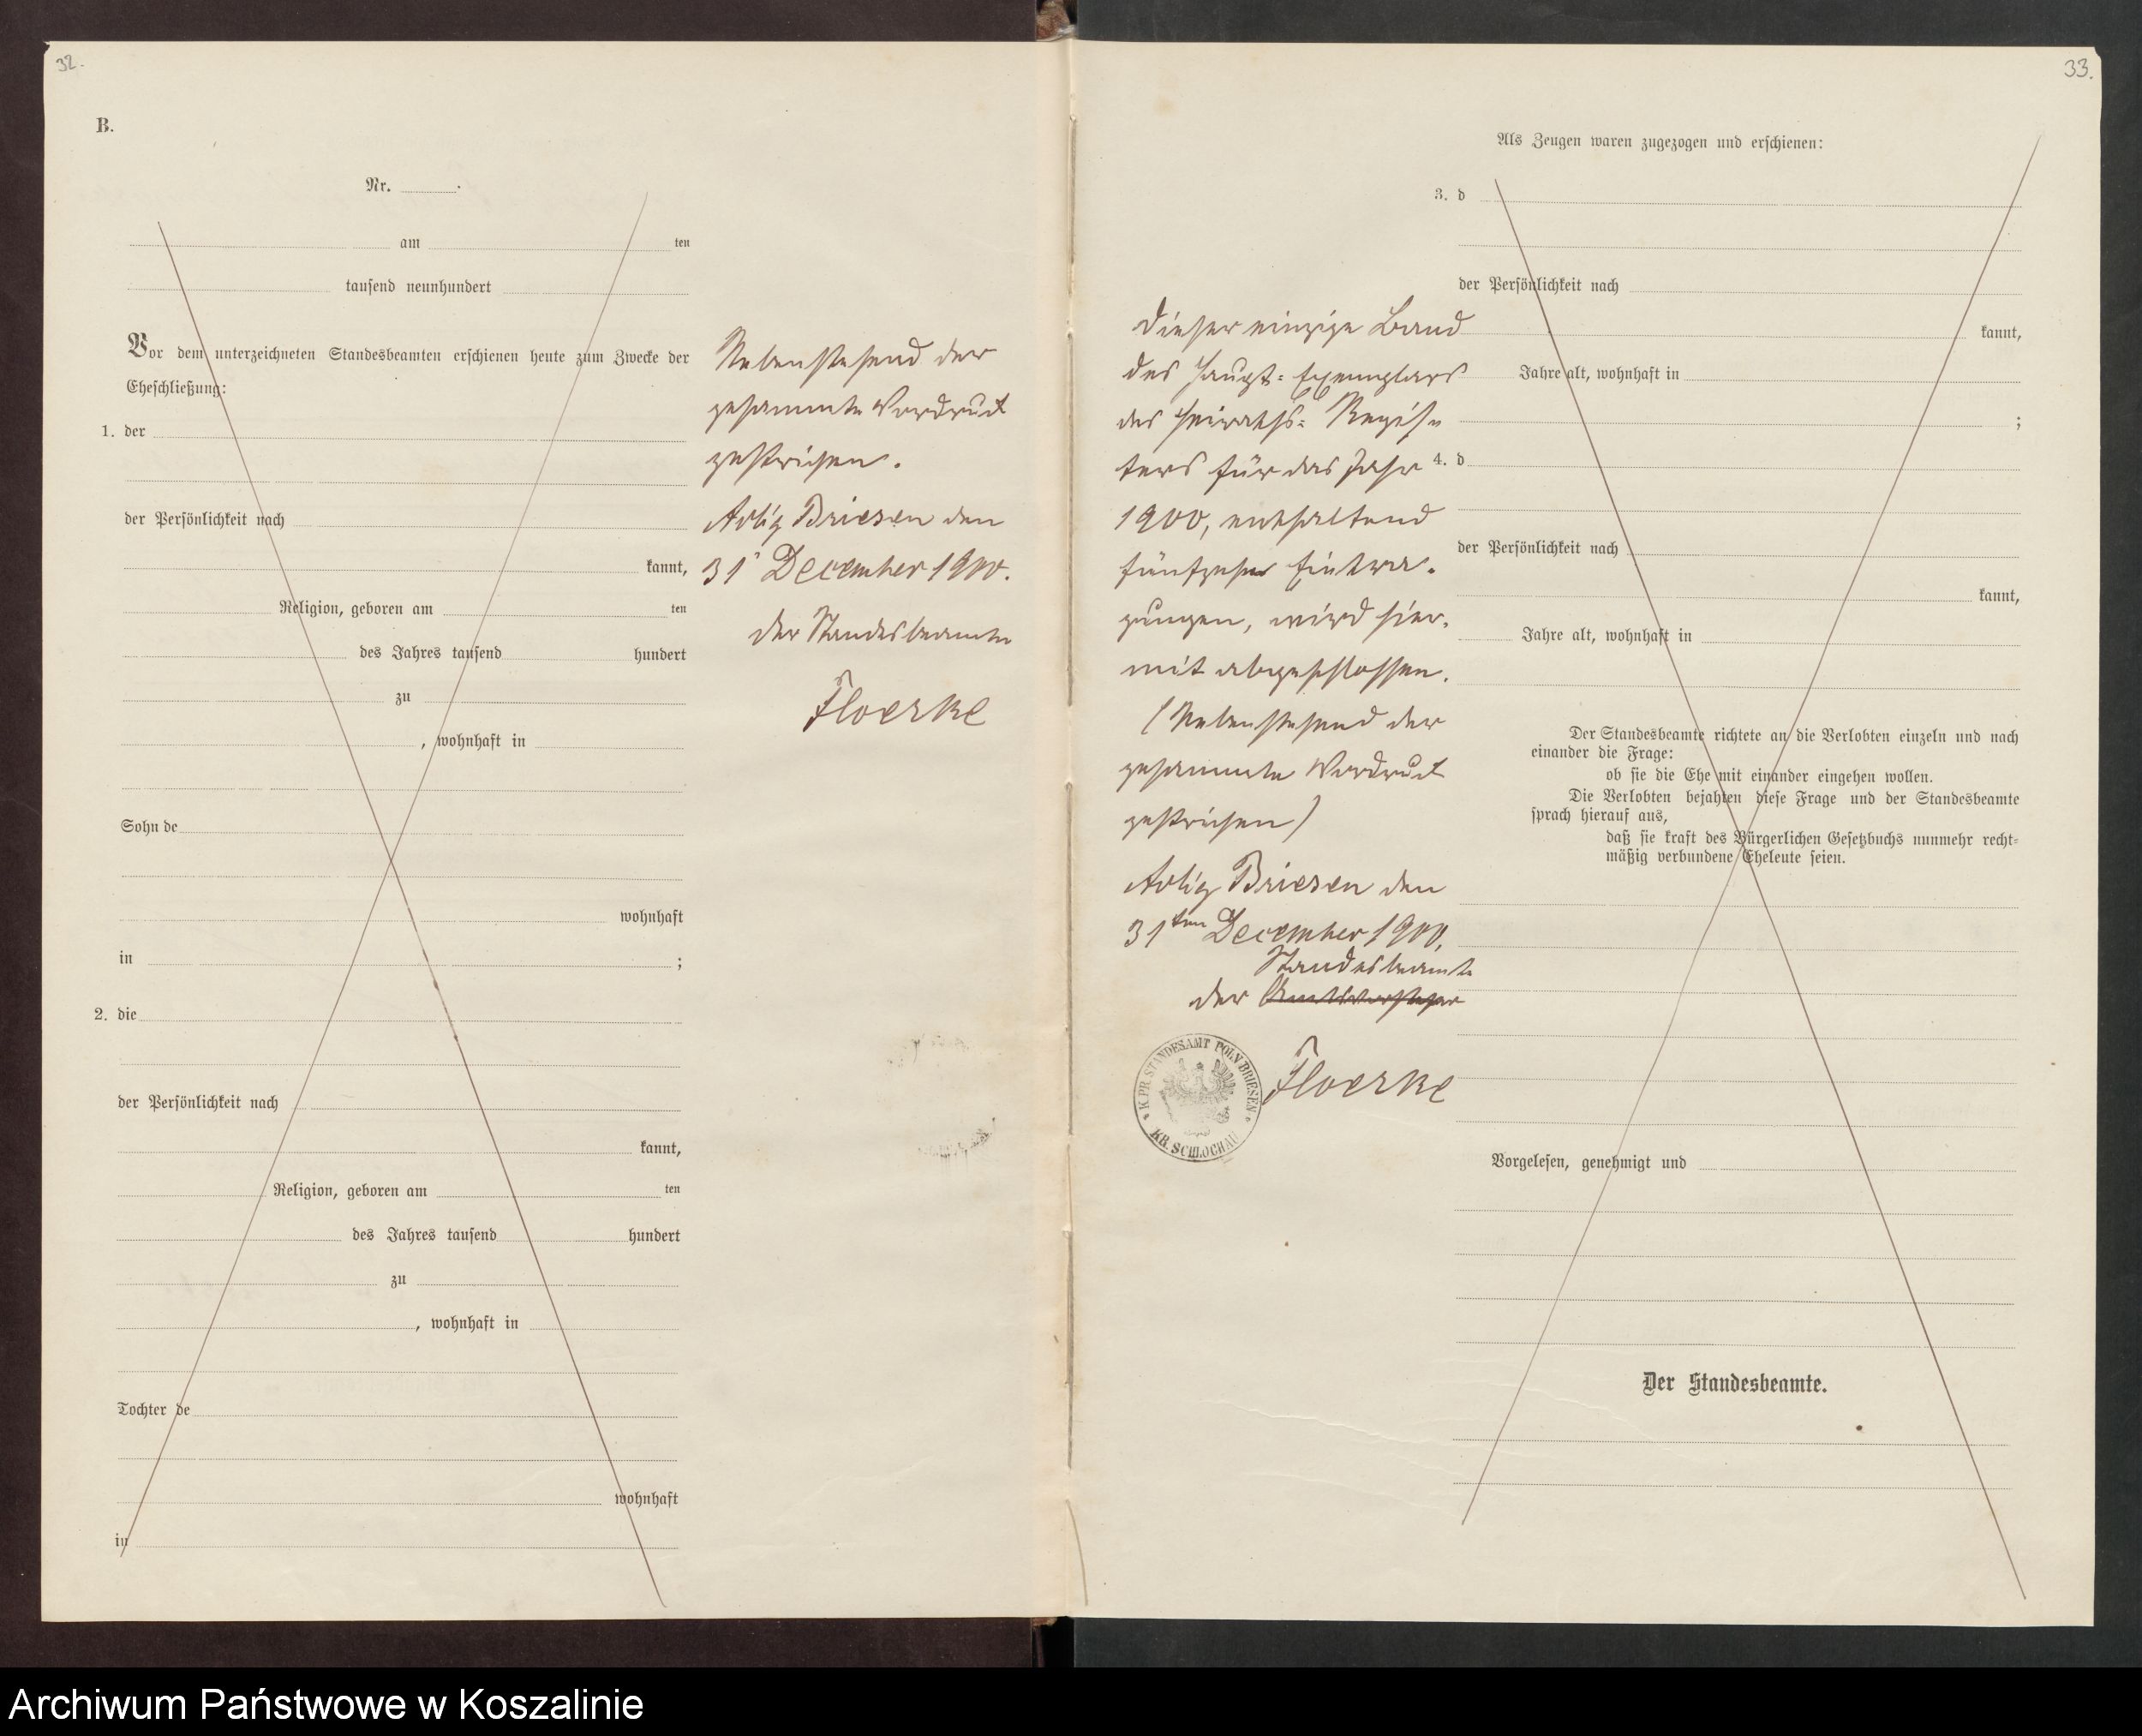 32.
B.
Nr.
am ten
tausend neunhundert
Vor dem unterzeichneten Standesbeamten erschienen heute zum Zwecke der
Eheschließung:
1. der
der Persönlichkeit nach
kannt,
Religion, geboren am ten
des Jahres tausend hundert
zu
, wohnhaft in
Sohn de
wohnhaft
in ;
2. die
der Persönlichkeit nach
kannt,
Religion, geboren am ten
des Jahres tausend hundert
zu
, wohnhaft in
Tochter de
wohnhaft
in
Nebenstehend der
gesammte Vordruck
gestrichen.
Adlig Briesen den
31 December 1900.
der Standesbeamte
Floerke
33.
Als Zeugen waren zugezogen und erschienen:
3. d
der Persönlichkeit nach
kannt,
Jahre alt, wohnhaft in
;
4. d
der Persönlichkeit nach
kannt,
Jahre alt, wohnhaft in
Der Standesbeamte richtete an die Verlobten einzeln und nach
einander die Frage:
ob sie die Ehe mit einander eingehen wollen.
Die Verlobten bejahten diese Frage und der Standesbeamte
sprach hierauf aus,
daß sie kraft des Bürgerlichen Gesetzbuchs nunmehr recht-
mäßig verbundene Eheleute seien.
Vorgelesen, genehmigt und
Der Standesbeamte.
Dieser einzige Band
des Haupt-Exemplars
des Heiraths-Regis-
ters für das Jahr
1900, enthaltend
fünfzehn Eintra-
gungen, wird hier-
mit abgeschlossen.
(Nebenstehend der
gesammte Vordruck
gestrichen)
Adlig Briesen den
31ten December 1900.
Standesbeamte
der Amtsvorsteher
Floerke
K. PR. STANDESAMT POLN. BRIESEN
KR. SCHLOCHAU
Archiwum Państwowe w Koszalinie